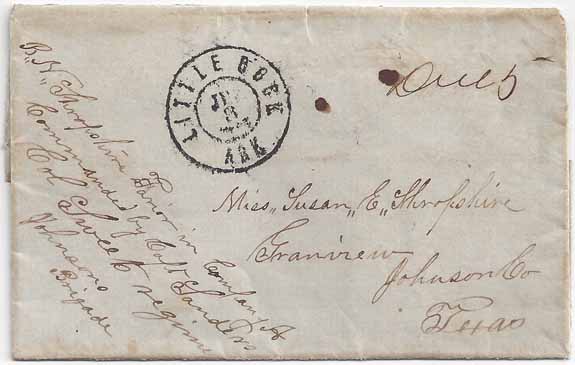 B. N. Shropshire Junior in Company A
Commanded by Capt Sanders
Col Sweet regime
Johnsons
Brigade
LITTLE ROCK
8
ARK
Due 5
Miss „Susan „E„ Shropshire
Granview
Johnson Co
Texas